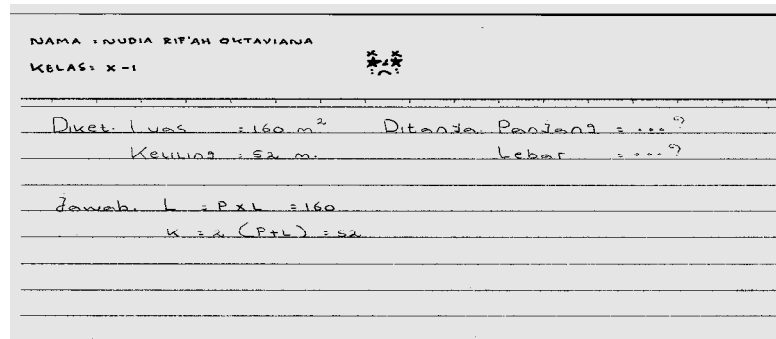 NAMA : NUDIA RIF'AH OKTAVIANA
KELAS : X-1
Diket. Luas = 160 m² Ditanya. Panjang = ...?
Keliling = 52 m. Lebar = ...?
Jawab. L = P x L = 160
K = 2 (P+L) = 52